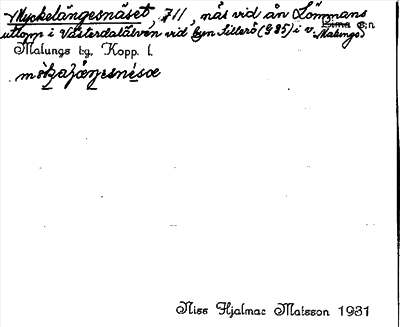 Myckelängesnäset, 711, näs vid ån Lömmans
utlopp i Västerdalälven vid byn Sillerö (G 85) i v. Malungs
Lima s:n
Malungs tg, Kopp. l.
Niss Hjalmar Matsson 1931